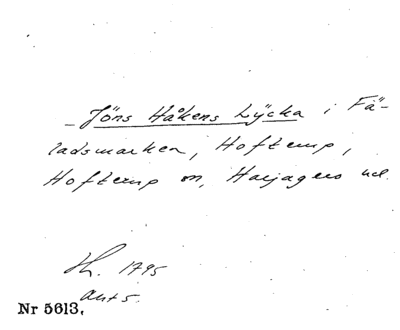 - Jöns Håkens Lÿcka i Fä-
ladsmarken, Hofterup,
Hofterup sn, Harjagers hd.
H. 1795
akt 5.
Nr 5613,